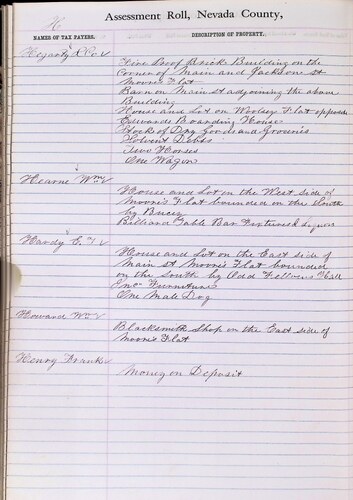 H
Assessment Roll, Nevada County,
NAMES OF TAX PAYERS.
DESCRIPTION OF PROPERTY.
Hegarty & Co
Fire Proof Brick Building on the
Corner of Main and Jackson st
Moores Flat
Barn on Main st adjoining the above
Building
House and Lot on Woolsey Flat opposite
Edwards Boarding House
Stock of Dry Goods and Groceries
Solvent Debts
Two Horses
One Wagon
Hearne Wm
House and Lot on the West side of
Moore's Flat bounded on the South
by
Billiard Table Bar Fixtures Liquors
Hardy E. T.
House and Lot on the East side of
Main st Moore's Flat bounded
on the South by Odd Fellows Hall
Furniture
One Male Dog
Howard Wm
Blacksmith Shop on the East side of
Moore's Flat
Henry Frank
Money on Deposit